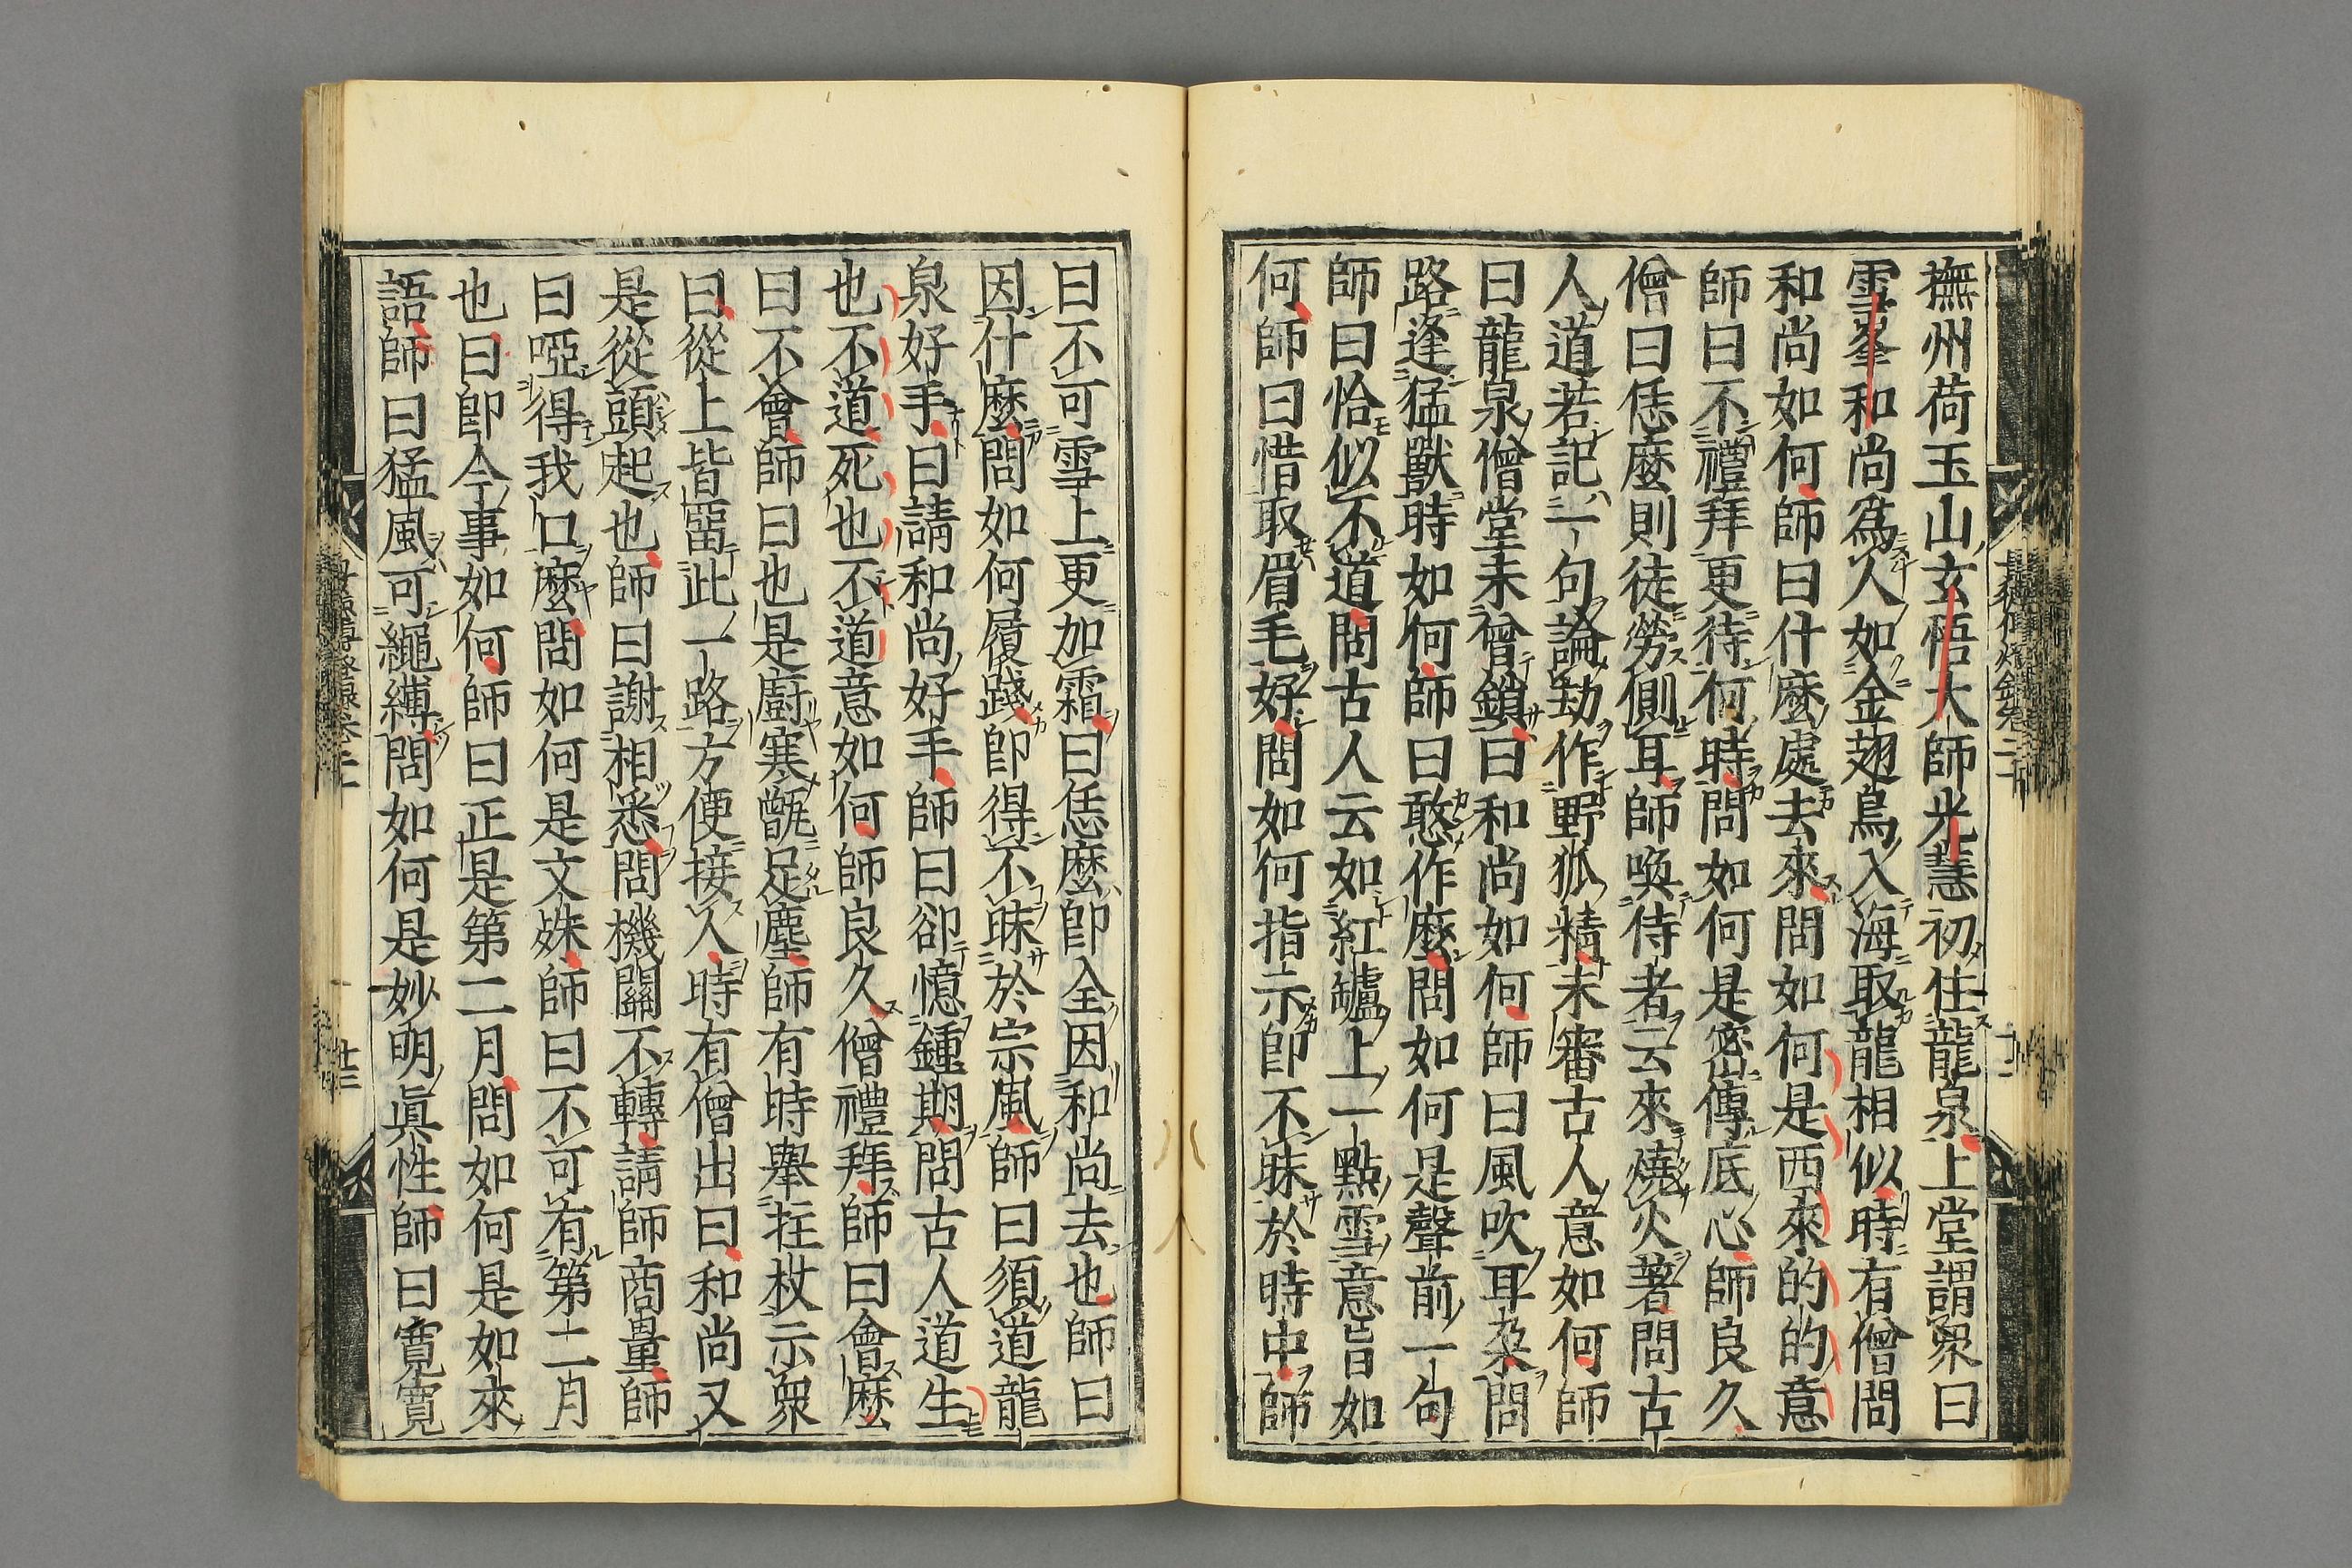 撫州荷玉山玄悟大師光慧初住龍泉上堂謂衆曰
雪峯和尚爲人如金翅鳥入海取龍相似時有僧問
和尚如何師曰什麼處去來問如何是西來的的意
師曰不禮拜更待何時問如何是密傳底心師良久
僧曰恁麼則徒勞側耳師喚侍者云來燒火著問古
人道若記一句論劫作野狐精未審古人意如何師
曰龍泉僧堂未曾鎖曰和尚如何師曰風吹耳朶問
路逢猛獸時如何師曰憨作麼問如何是聲前一句
師曰恰似不道問古人云如紅罏上一點雪意旨如
何師曰惜取眉毛好問如何指示即不昧於時中師
曰不可雪上更加霜曰恁麼即全因和尚去也師曰
因什麼問如何履踐即得不昧於宗風師曰須道龍
泉好手曰請和尚好手師曰卻憶鍾期問古人道生
也不道死也不道意如何師良久僧禮拜師曰會麼
曰不會師曰也是廚寒甑足塵師有時舉拄杖示衆
曰從上皆留此一路方便接人時有僧出曰和尚又
是從頭起也師曰謝相悉問機關不轉請師商量師
曰啞得我口麼問如何是文殊師曰不可有第二月
也曰即今事如何師曰正是第二月問如何是如來
語師曰猛風可繩縛問如何是妙明眞性師曰寬寬